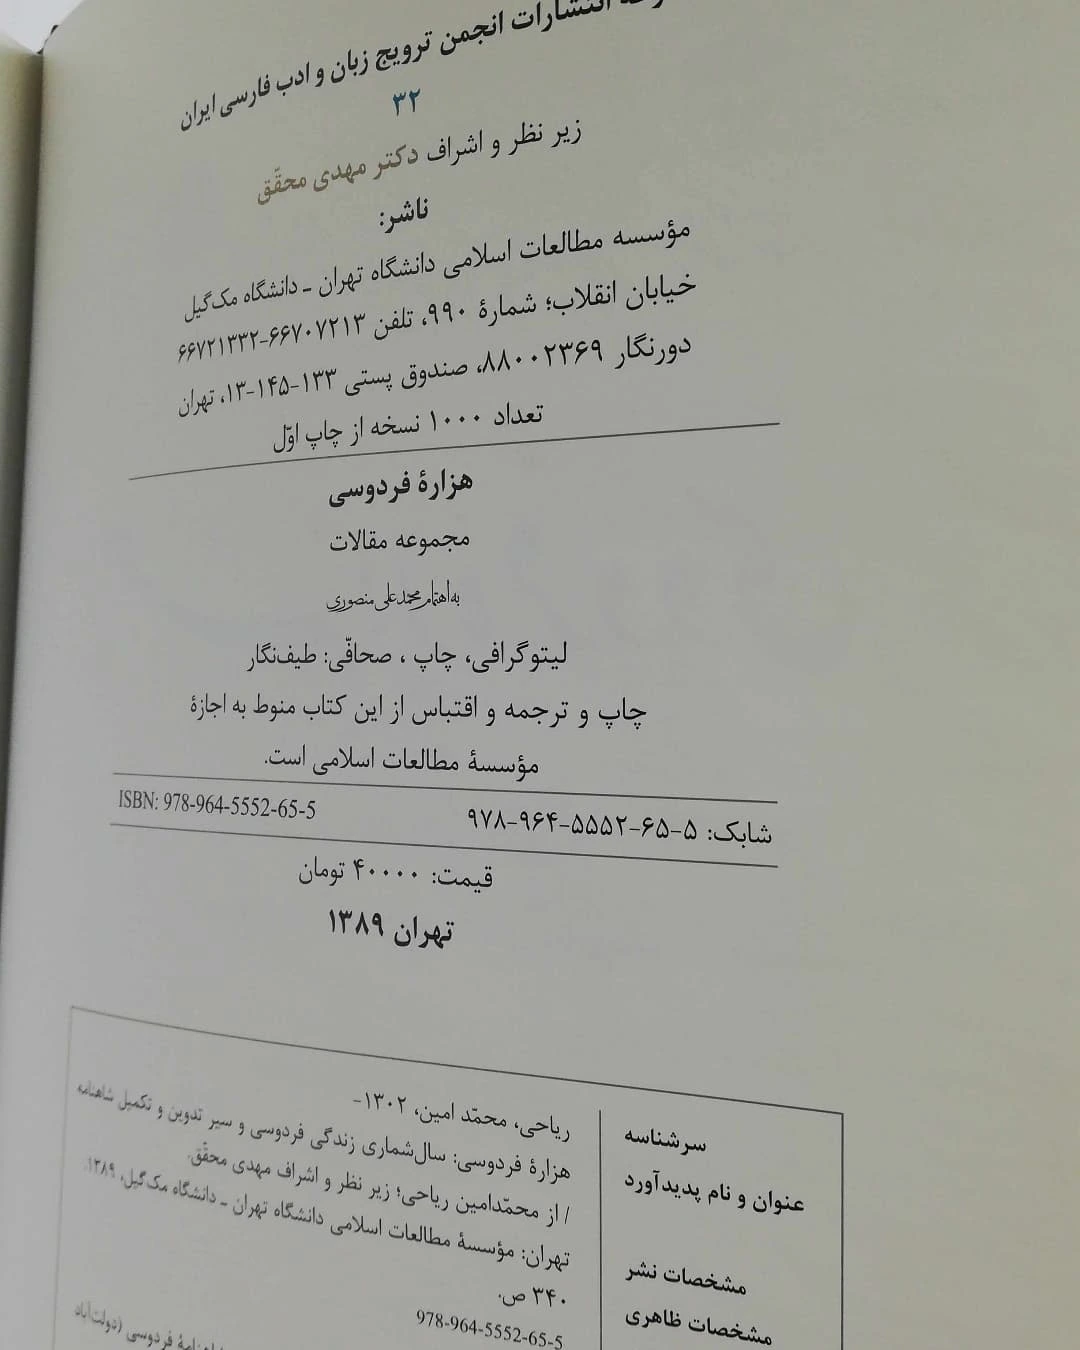 انتشارات انجمن ترویج زبان و ادب فارسی ایران
۳۲
زیر نظر و اشراف دکتر مهدی محقّق
ناشر:
مؤسسه مطالعات اسلامی دانشگاه تهران ـ دانشگاه مک‌گیل
خیابان انقلاب؛ شمارهٔ ۹۹۰، تلفن ۶۶۷۰۷۲۱۳-۶۶۷۲۱۳۳۲
دورنگار ۸۸۰۰۲۳۶۹، صندوق پستی ۱۳۳-۱۴۵-۱۳، تهران
تعداد ۱۰۰۰ نسخه از چاپ اوّل
هزارهٔ فردوسی
مجموعه مقالات
به اهتمام محمدعلی منصوری
لیتوگرافی، چاپ ، صحافّی: طیف‌نگار
چاپ و ترجمه و اقتباس از این کتاب منوط به اجازهٔ
مؤسسهٔ مطالعات اسلامی است.
شابک: ۵-۶۵-۵۵۵۲-۹۶۴-۹۷۸ ISBN: 978-964-5552-65-5
قیمت: ۴۰۰۰۰ تومان
تهران ۱۳۸۹
سرشناسه ریاحی، محمّد امین، ۱۳۰۲-
عنوان و نام پدیدآورد هزارهٔ فردوسی: سال‌شماری زندگی فردوسی و سیر تدوین و تکمیل شاهنامه
/ از محمّدامین ریاحی؛ زیر نظر و اشراف مهدی محقّق.
مشخصات نشر تهران: مؤسسهٔ مطالعات اسلامی دانشگاه تهران ـ دانشگاه مک‌گیل، ۱۳۸۹.
مشخصات ظاهری ۳۴۰ ص.
978-964-5552-65-5
فردوسی (دولت‌آباد